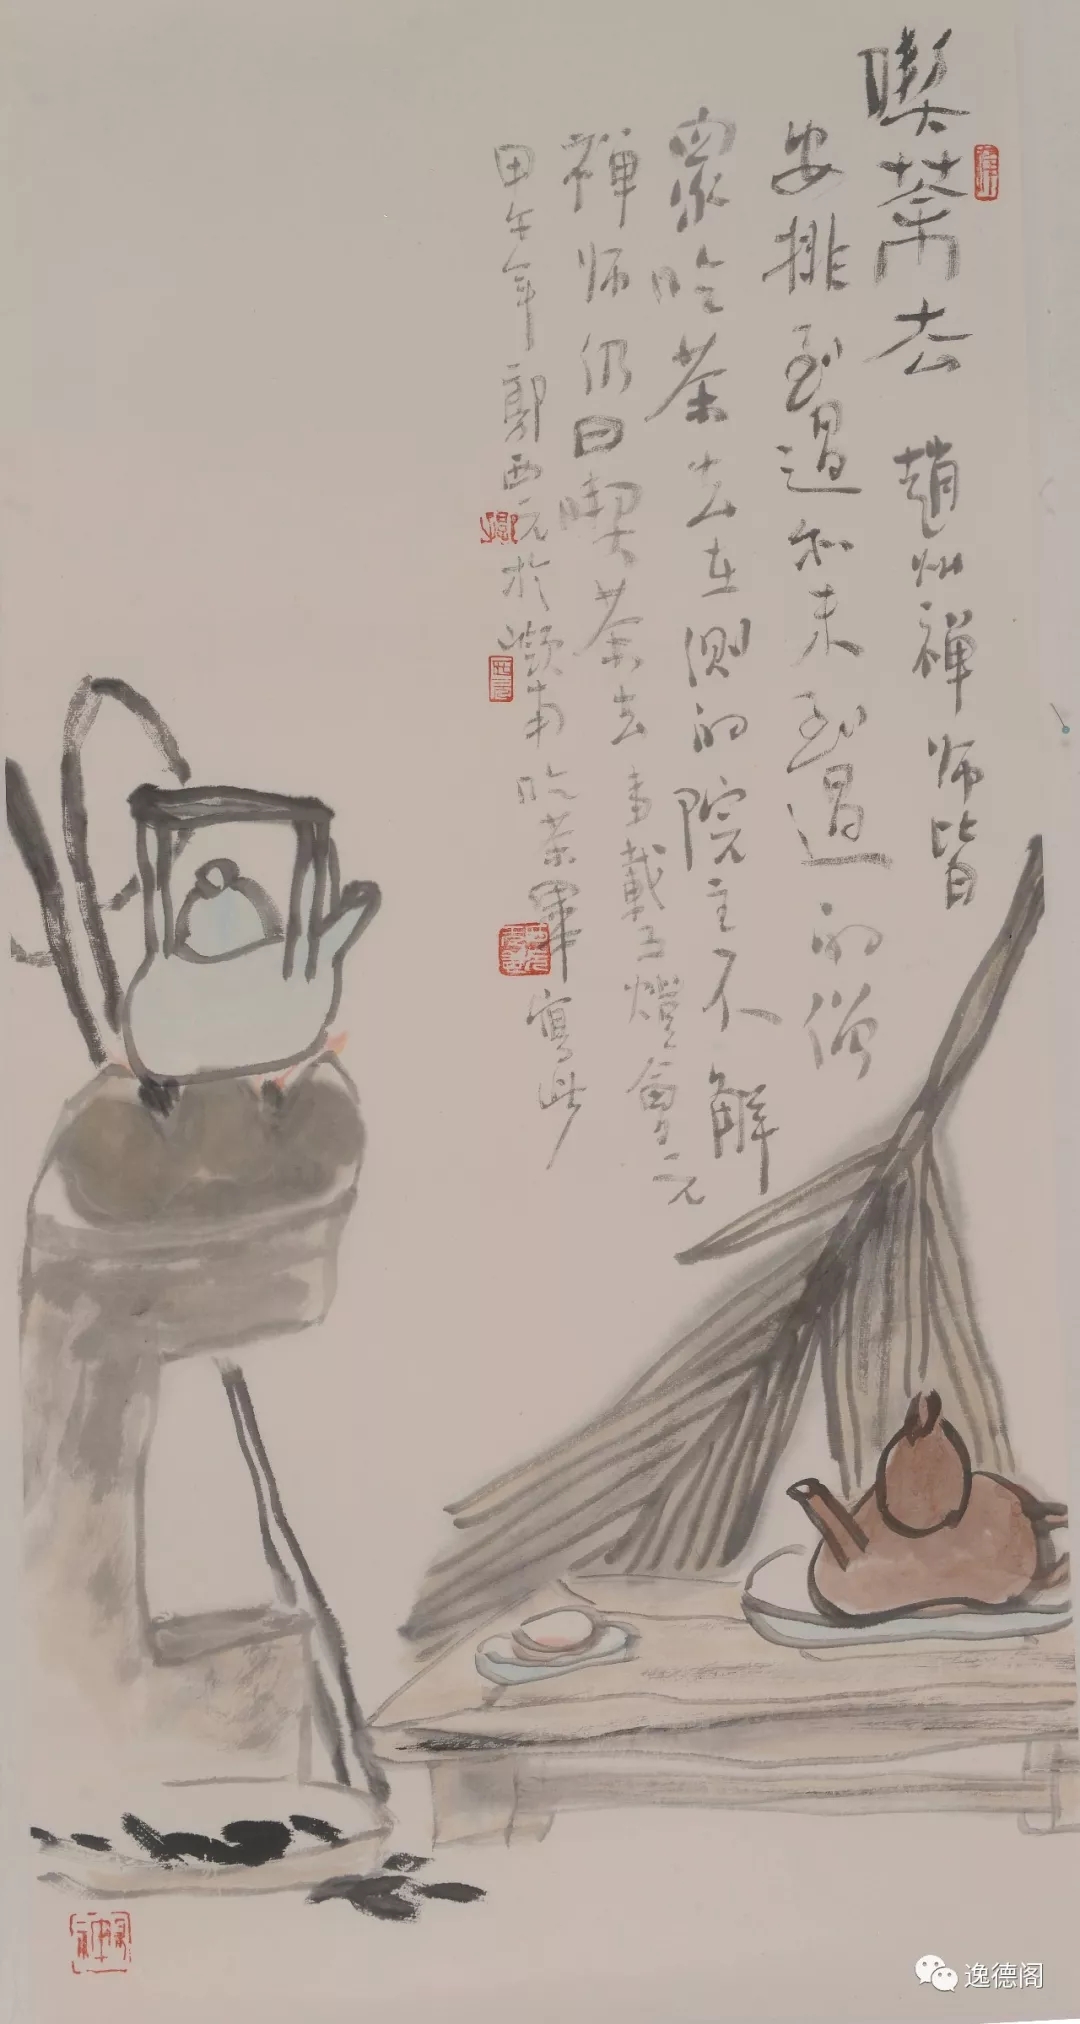 喫茶去 趙州禅师皆
安排到過和未到過的僧
衆吃茶去在側的院主不解
禅师仍曰喫茶去 事載五燈會元
甲午年郭西元於 南吃茶畢寫此
逸德阁